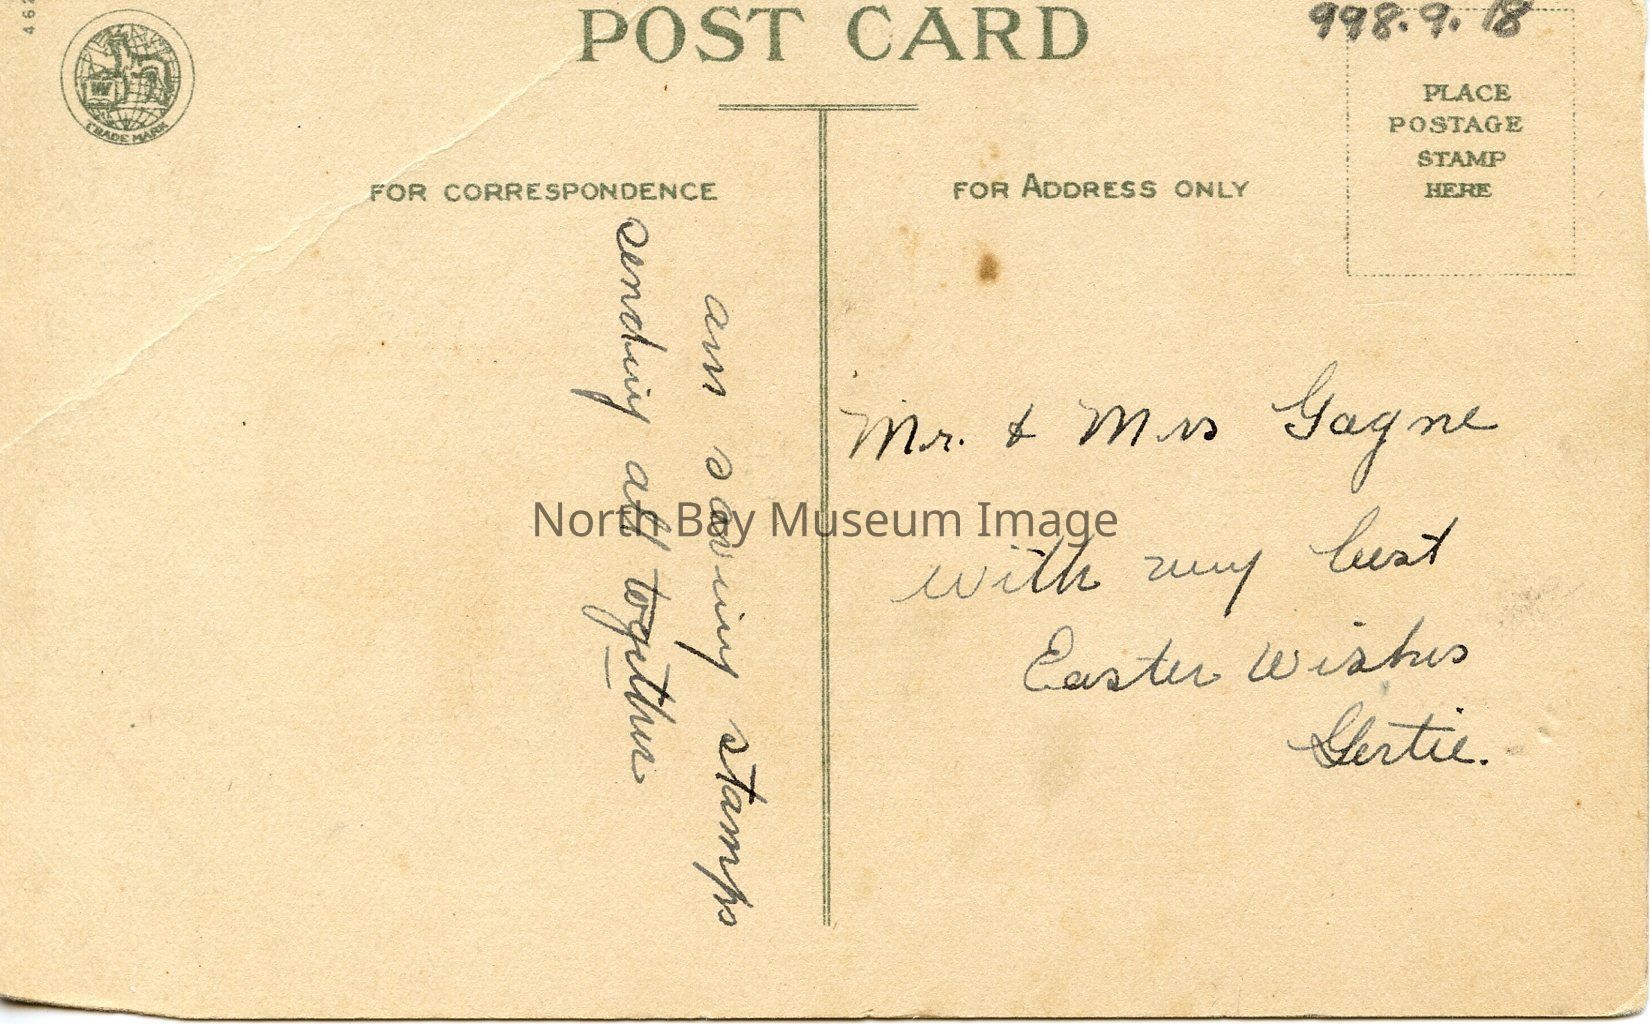 POST CARD
998.9.18
PLACE
POSTAGE
STAMP
HERE
W
TRADE MARK
FOR CORRESPONDENCE
FOR ADDRESS ONLY
am saving stamps
sending all together
Mr. & Mrs Gagne
with my best
Easter Wishes
Gertie.
North Bay Museum Image